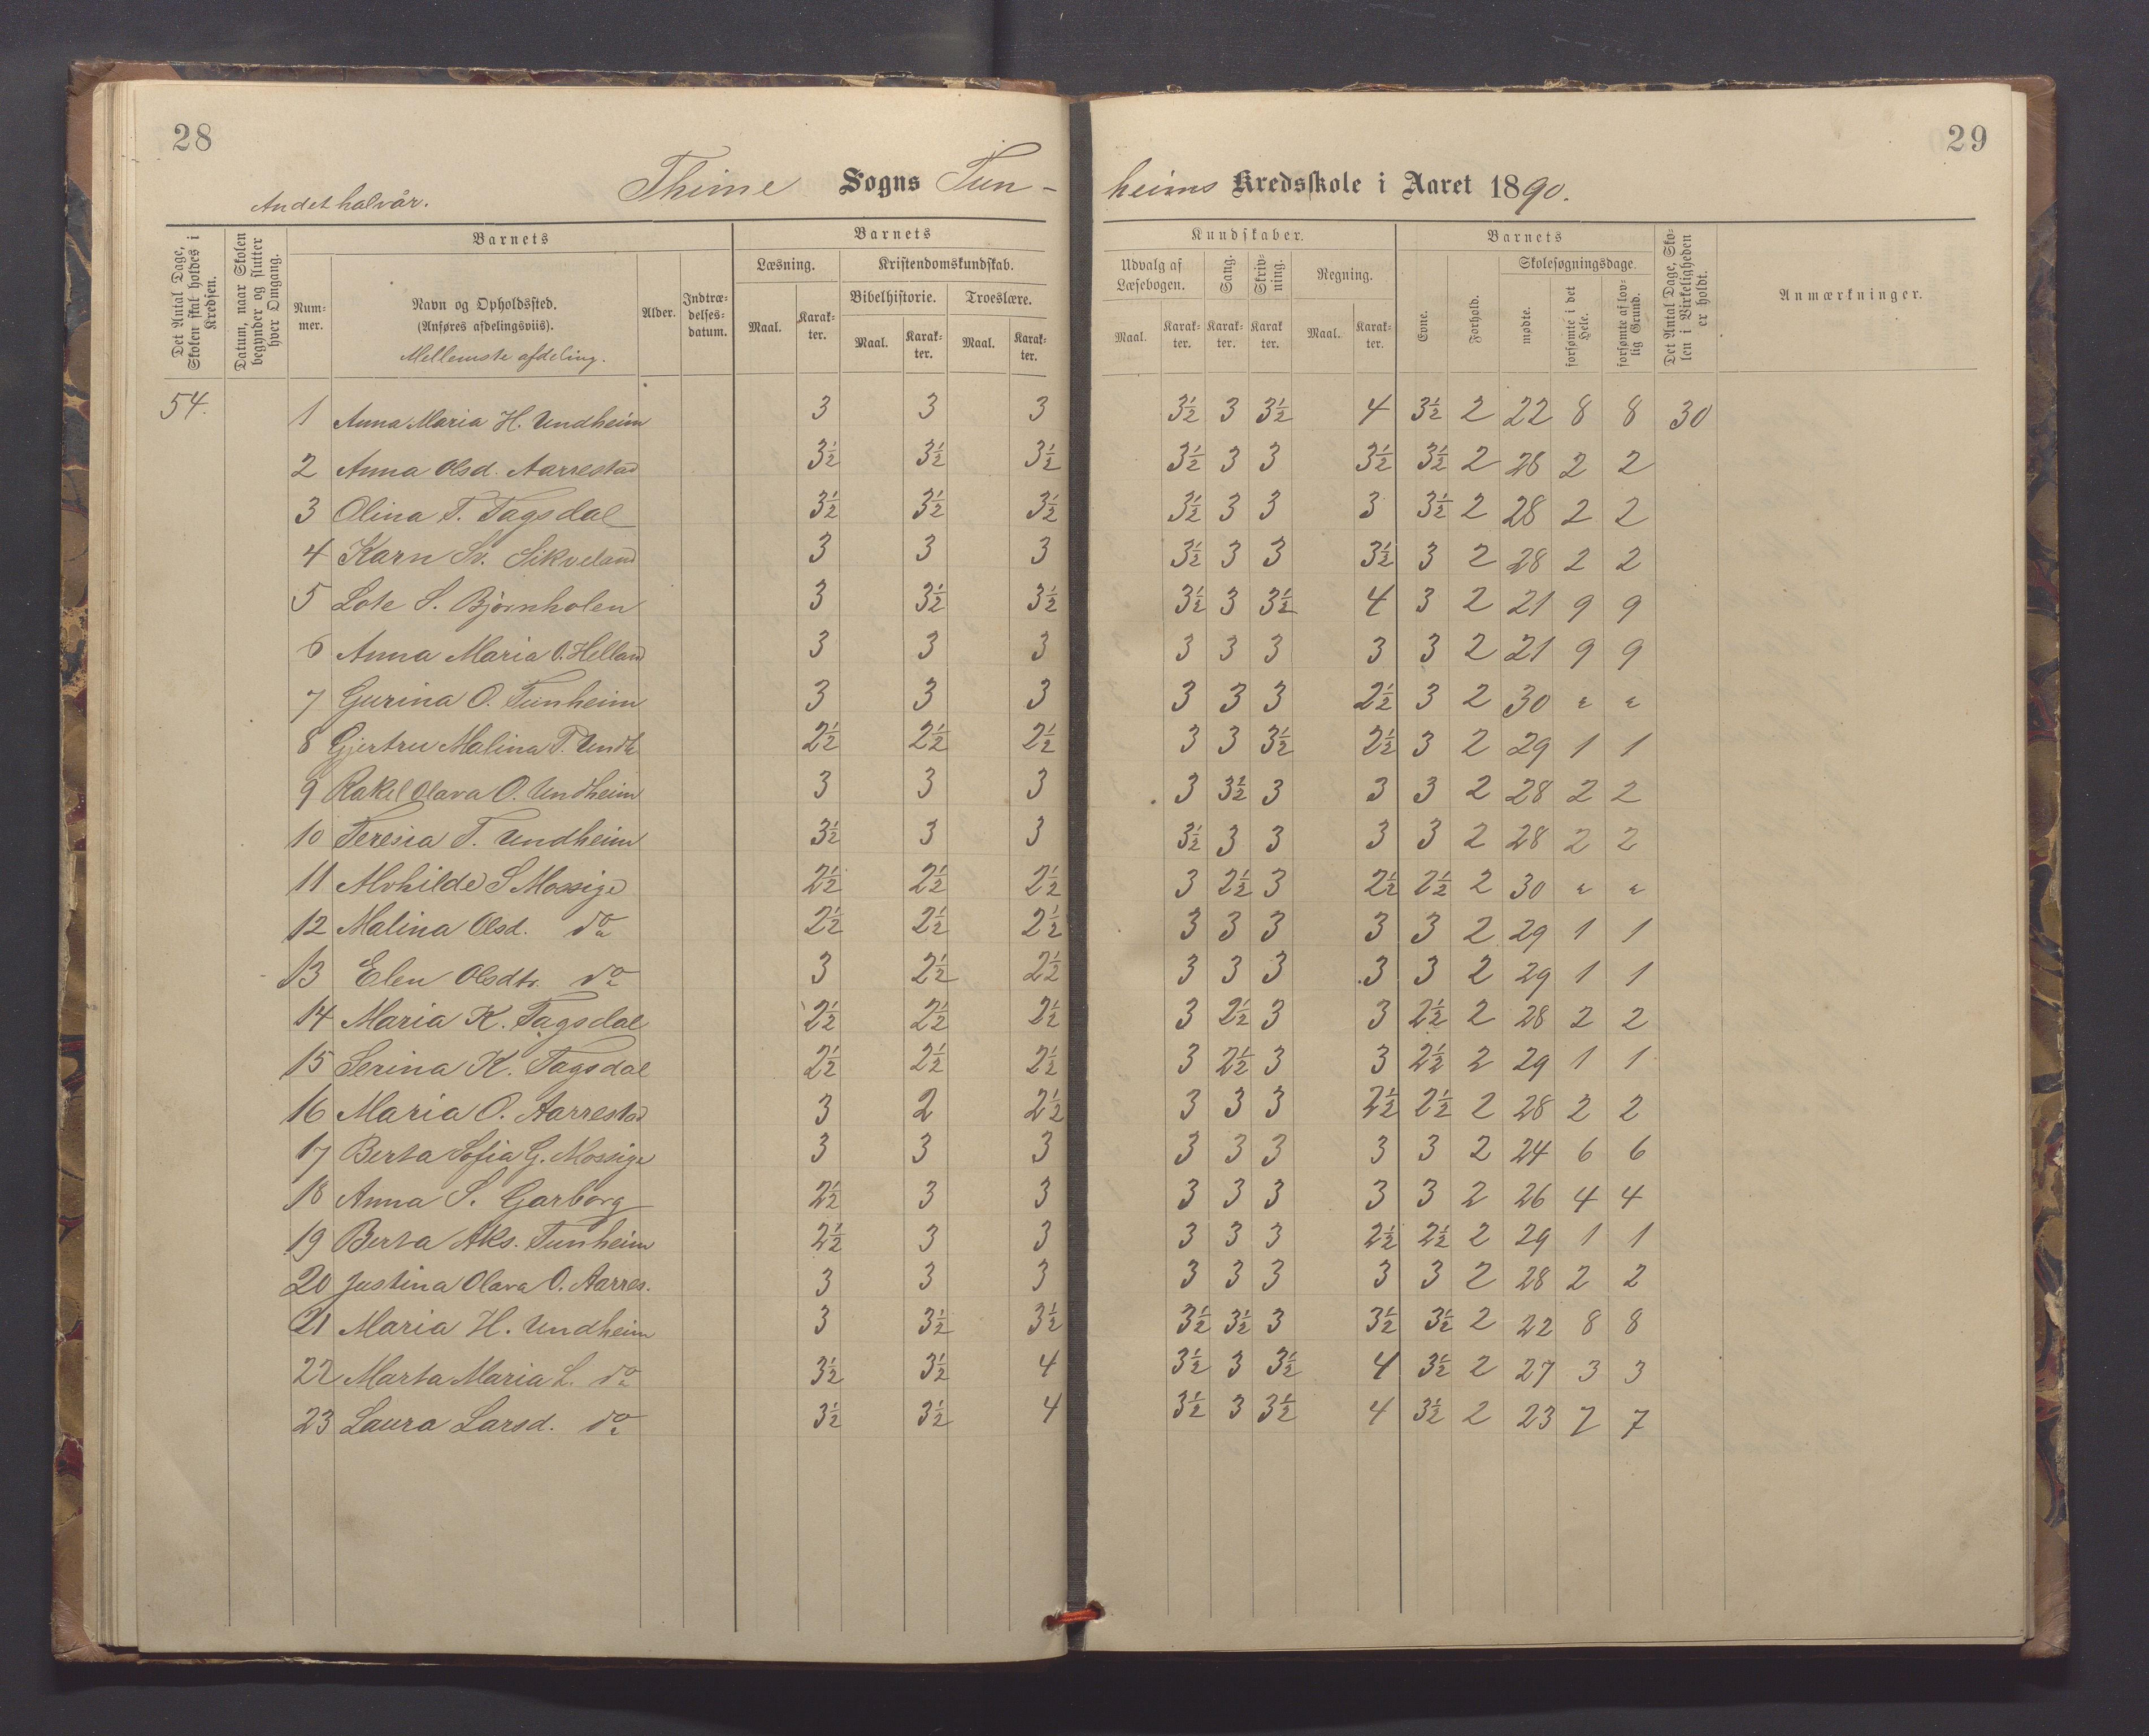 28
29
Andet halvår. Thime Sogns Tun-heims Kredsskole i Aaret 1890.
Det Antal Dage, Skolen skal holdes i Kredsen.
Datum, naar Skolen begynder og slutter hver Omgang.
Barnets
Nummer.
Navn og Opholdssted.
(Anføres afdelingsviis).
Mellemste afdeling.
Alder.
Indtrædelsesdatum.
Barnets
Læsning.
Maal.
Karakter.
Kristendomskundskab.
Bibelhistorie.
Maal.
Karakter.
Troeslære.
Maal.
Karakter.
Kundskaber.
Udvalg af Læsebogen.
Maal.
Karakter.
Sang.
Karakter.
Skrivning.
Karakter.
Regning.
Maal.
Karakter.
Barnets
Evne.
Forhold.
Skolesøgningsdage.
mødte.
forsømte i det Hele.
forsømte af lovlig Grund.
Det Antal Dage, Skolen i Virkeligheden er holdt.
Anmærkninger.
54. 1 Anna Maria H. Undheim 3 3 3 3½ 3 3½ 4 3½ 2 22 8 8 30
2 Anna Olsd. Aarrestad 3½ 3½ 3½ 3½ 3 3 3½ 3½ 2 28 2 2
3 Olina T. Tagsdal 3½ 3½ 3½ 3½ 3 3 3 3½ 2 28 2 2
4 Karn Sv. Sikveland 3 3 3 3½ 3 3 3½ 3 2 28 2 2
5 Lote S. Bjørnholen 3 3½ 3½ 3½ 3 3½ 4 3 2 21 9 9
6 Anna Maria O. Helland 3 3 3 3 3 3 3 3 2 21 9 9
7 Gurina O. Tunheim 3 3 3 3 3 3 2½ 3 2 30 " "
8 Gjertru Malina T. Undh 2½ 2½ 2½ 3 3 3½ 2½ 3 2 29 1 1
9 Rakel Olava O. Undheim 3 3 3 3 3½ 3 3 3 2 28 2 2
10 Teresia T. Undheim 3½ 3 3 3½ 3 3 3 3 2 28 2 2
11 Alvhilde S Mossige 2½ 2½ 2½ 3 2½ 3 2½ 2½ 2 30 " "
12 Malina Olsd. do 2½ 2½ 2½ 3 3 3 3 3 2 29 1 1
13 Elen Olsdtr. do 3 2½ 2½ 3 3 3 3 3 2 29 1 1
14 Maria K. Tagsdal 2½ 2½ 2½ 3 2½ 3 3 2½ 2 28 2 2
15 Serina K. Tagsdal 2½ 2½ 2½ 3 2½ 3 3 2½ 2 29 1 1
16 Maria O. Aarrestad 3 2 2½ 3 3 3 2½ 2½ 2 28 2 2
17 Berta Sofia G. Mossige 3 3 3 3 3 3 3 3 2 24 6 6
18 Anna S. Garborg 2½ 3 3 3 3 3 3 3 2 26 4 4
19 Berta Aks. Tunheim 2½ 3 3 3 3 3 2½ 2½ 2 29 1 1
20 Justina Olava O. Aarres. 3 3 3 3 3 3 3 3 2 28 2 2
21 Maria H. Undheim 3 3½ 3½ 3½ 3½ 3 3½ 3½ 2 22 8 8
22 Marta Maria L. do 3½ 3½ 4 3½ 3 3½ 4 3½ 2 27 3 3
23 Laura Larsd. do 3½ 3½ 4 3½ 3 3½ 4 3½ 2 23 7 7